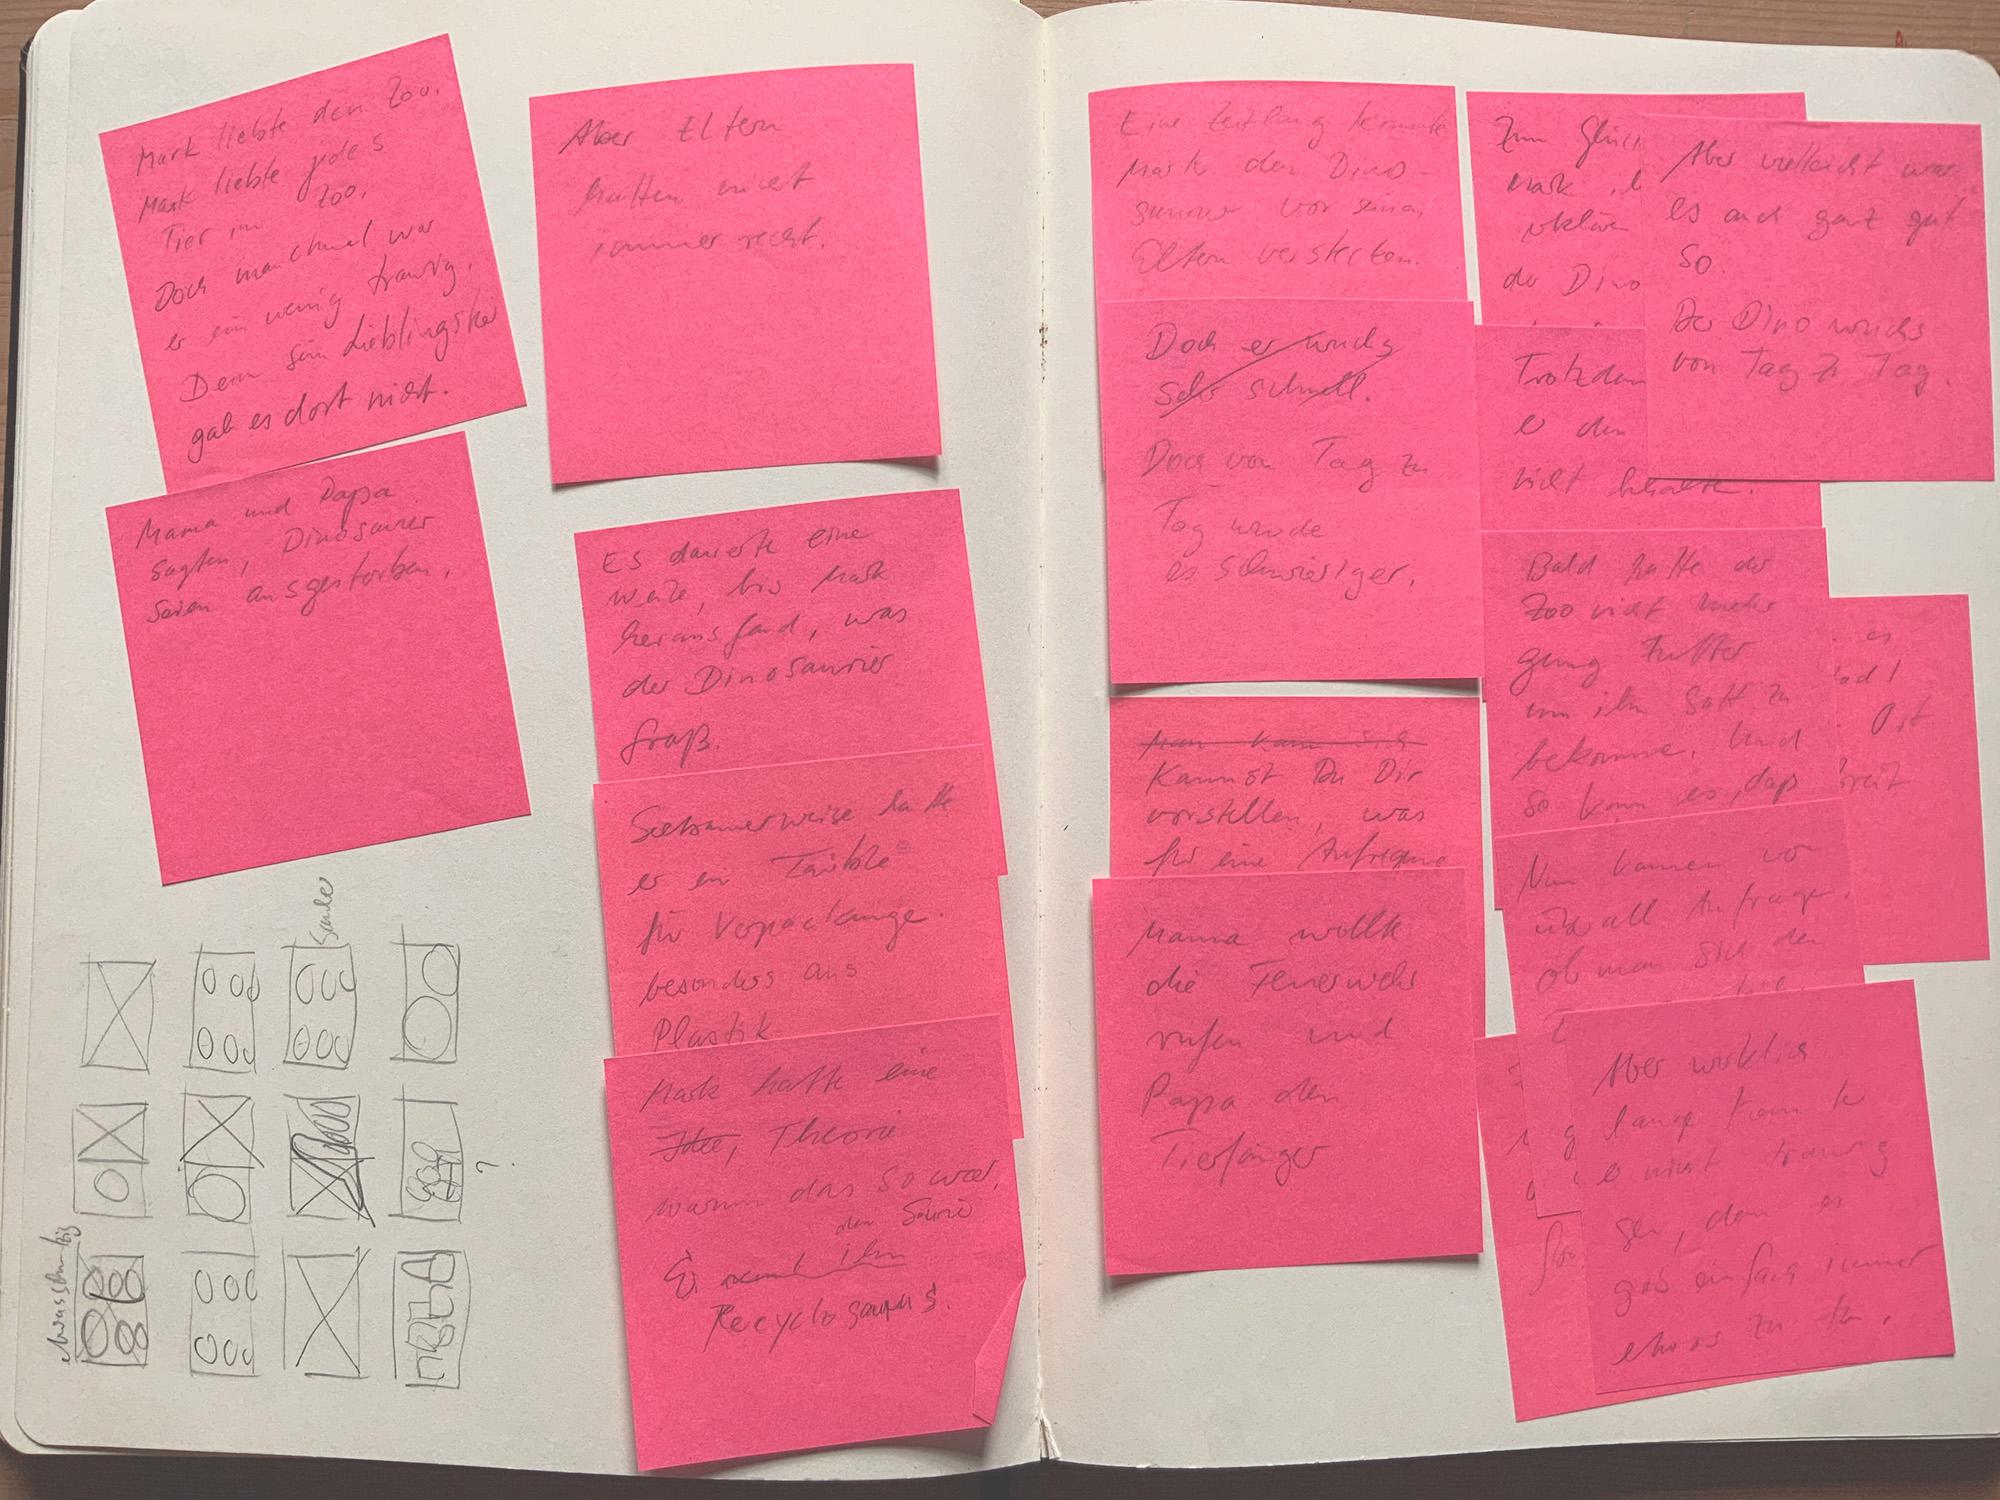 Mark liebte den Zoo.
Mark liebte jedes
Tier im Zoo.
Doch manchmal war
er ein wenig traurig.
Denn sein Lieblingstier
gab es dort nicht.
Mama und Papa
sagten, Dinosaurier
seien ausgestorben.
Aber Eltern
hatten nicht
immer recht.
Es dauerte eine
weile, bis Mark
herausfand, was
der Dinosaurier
fraß.
Seltsamerweise hatte
er ein
für Verpackunge
besonders aus
Plastik
Mark hatte eine
Idee, Theorie
warum das so war.
den Saurier
Er nannte ihn
Recyclosaurus.
Eine Zeitlang konnte
Mark den Dino-
saurier vor seinen
Eltern verstecken.
Doch er wuchs
sehr schnell.
Doch von Tag zu
Tag wurde
es schwieriger.
Man kann sich
Kannst Du Dir
vorstellen, was
für eine Aufregung
Mama wollte
die Feuerwehr
rufen und
Papa den
Tierfänger
Zum Glück
Mark
erklären
der Dino
Aber vielleicht war
es auch ganz gut
so.
Der Dino wuchs
von Tag zu Tag.
Trotzdem
er den
nicht behalten.
Bald hatte der
Zoo nicht mehr
genug Futter
um ihn satt zu
bekommen. Und
so kam es, daß
es
Ost
Nun kamen von
überall Anfragen,
ob man sich den
Aber wirklich
lange konnte
er nicht traurig
sein, denn es
gab einfach immer
etwas zu tun.
?